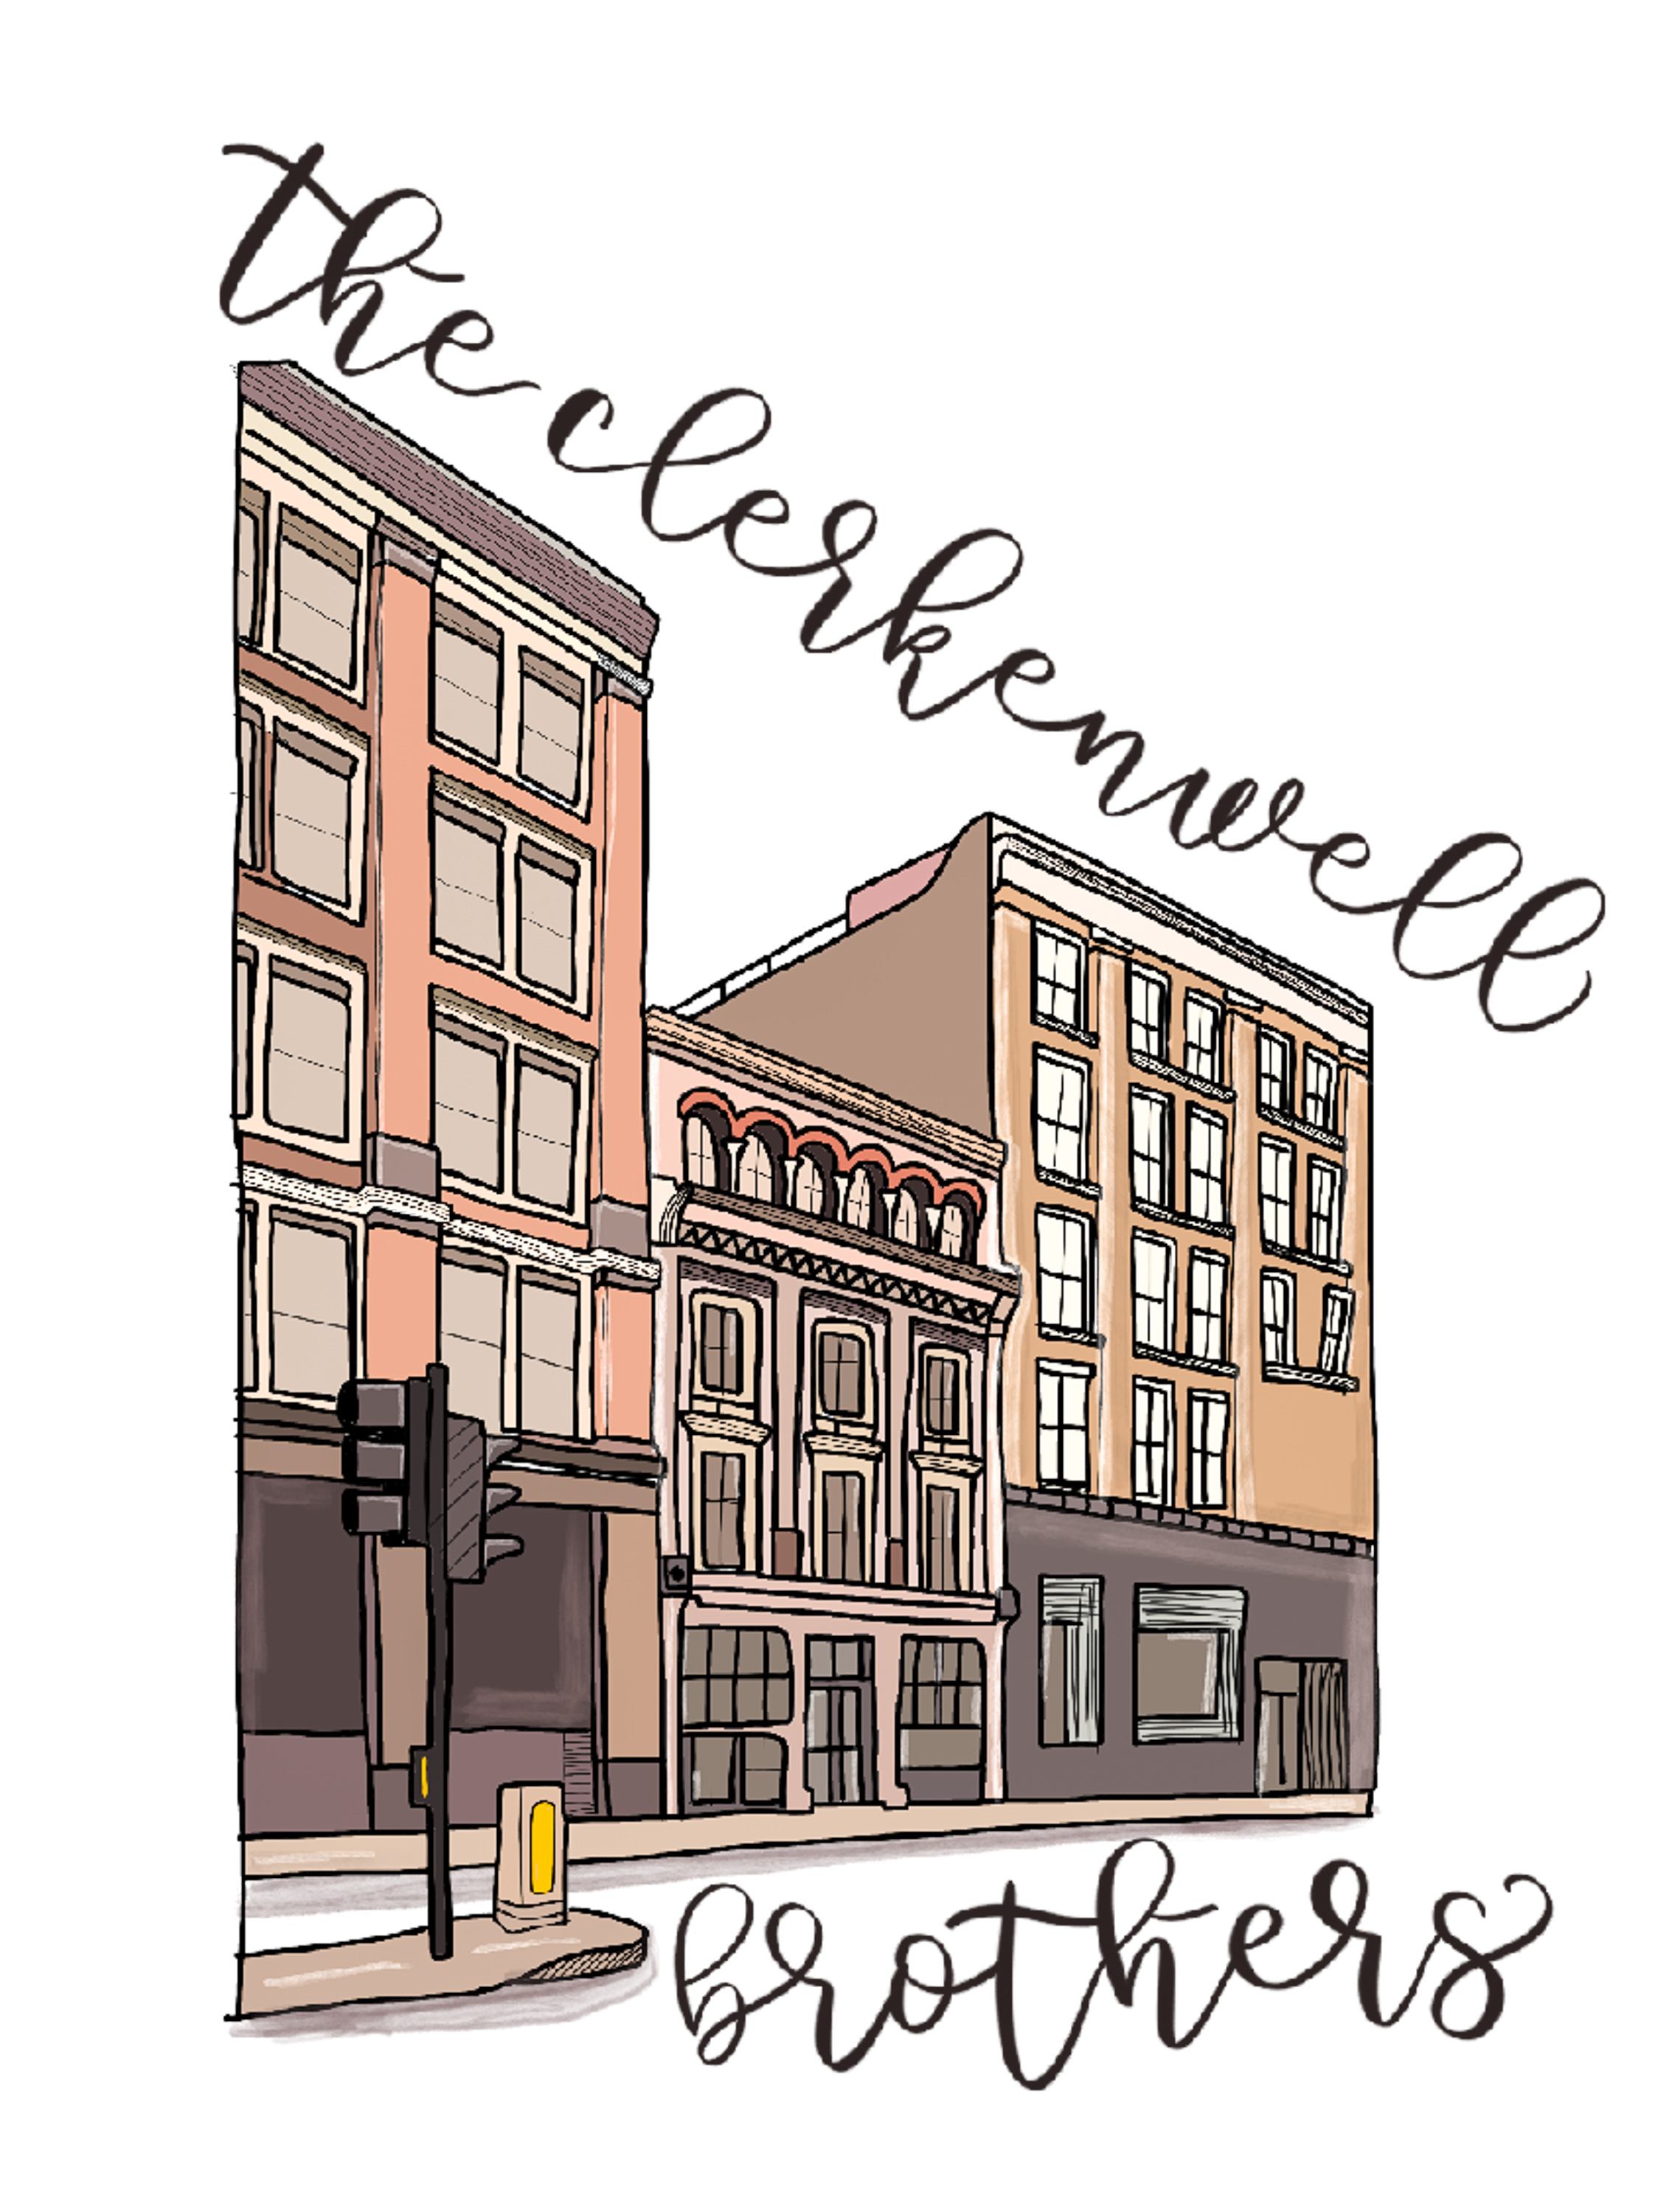 the clerkenwell
brothers